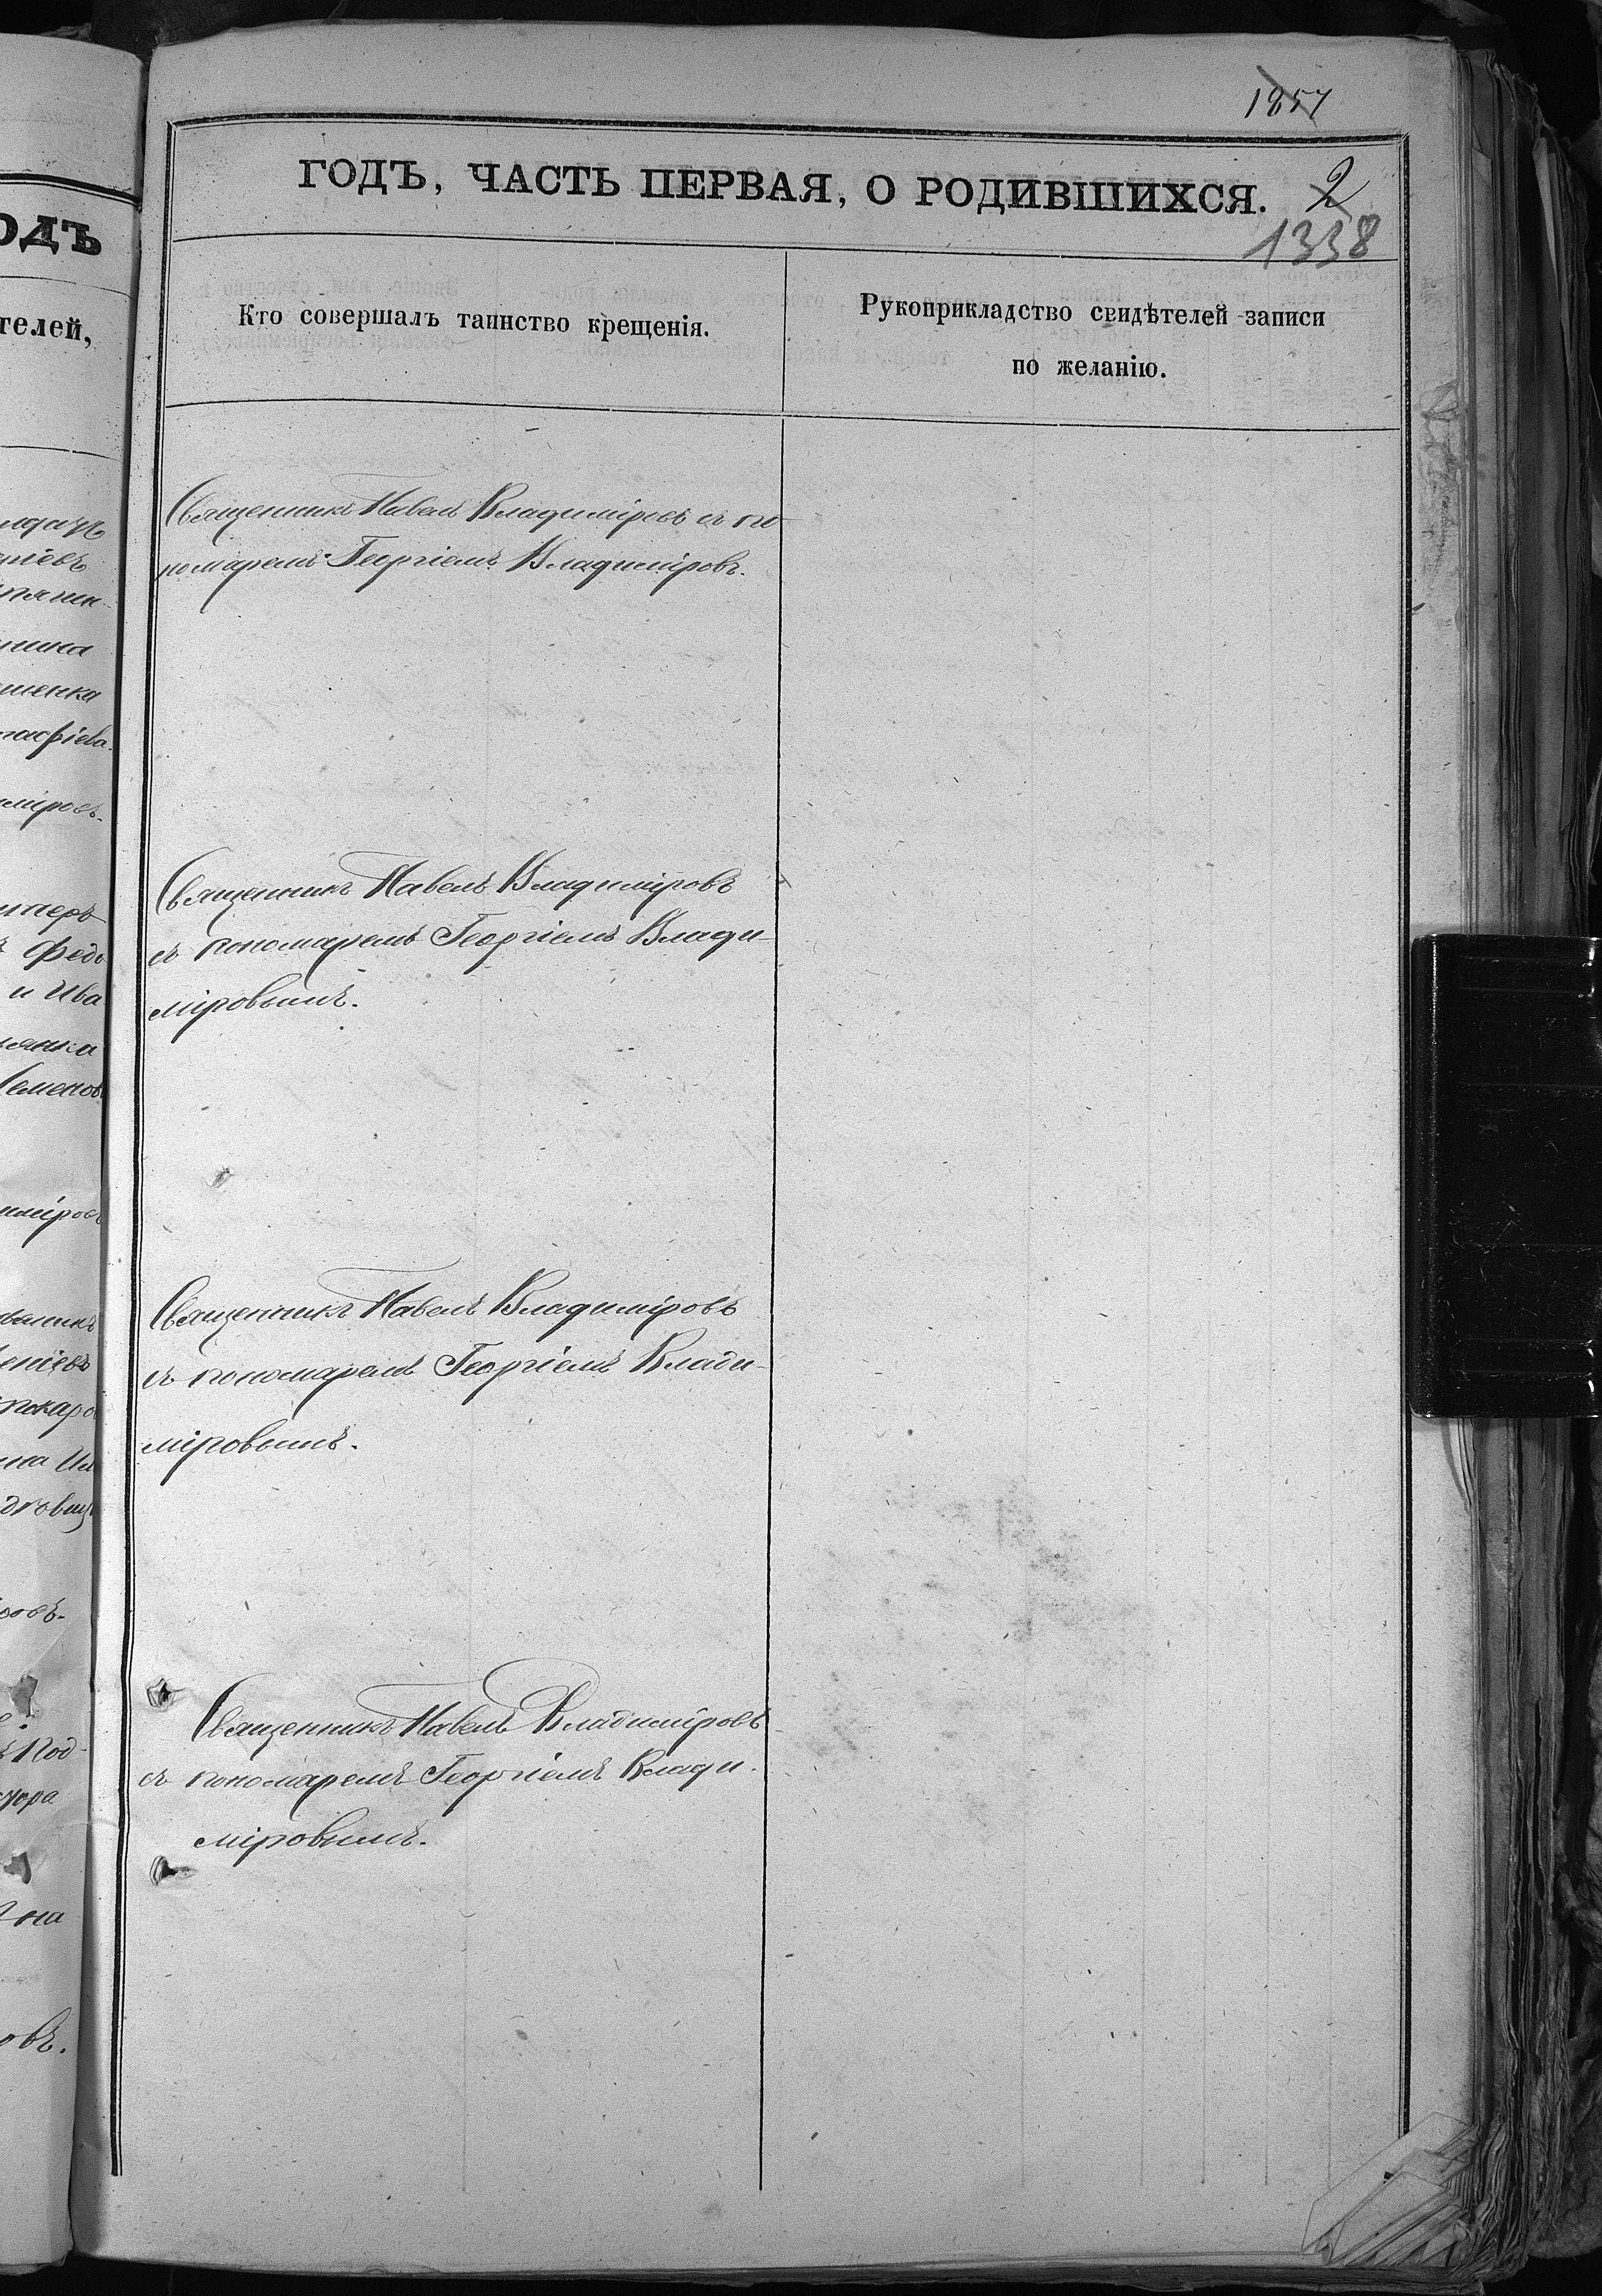 1257
ГОДЪ, ЧАСТЬ ПЕРВАЯ, О РОДИВШИХСЯ. 2
1338
Кто совершалъ таинство крещенія.
Рукоприкладство свидѣтелей записи
по желанію.
Священникъ Павелъ Владиміровъ съ по-
номаремъ Георгіемъ Владиміровъ.
Священникъ Павелъ Владиміровъ
съ пономаремъ Георгіемъ Влади-
міровымъ.
Священникъ Павелъ Владиміровъ
съ пономаремъ Георгіемъ Влади-
міровымъ.
Священникъ Павелъ Владиміровъ
съ пономаремъ Георгіемъ Влади-
міровымъ.